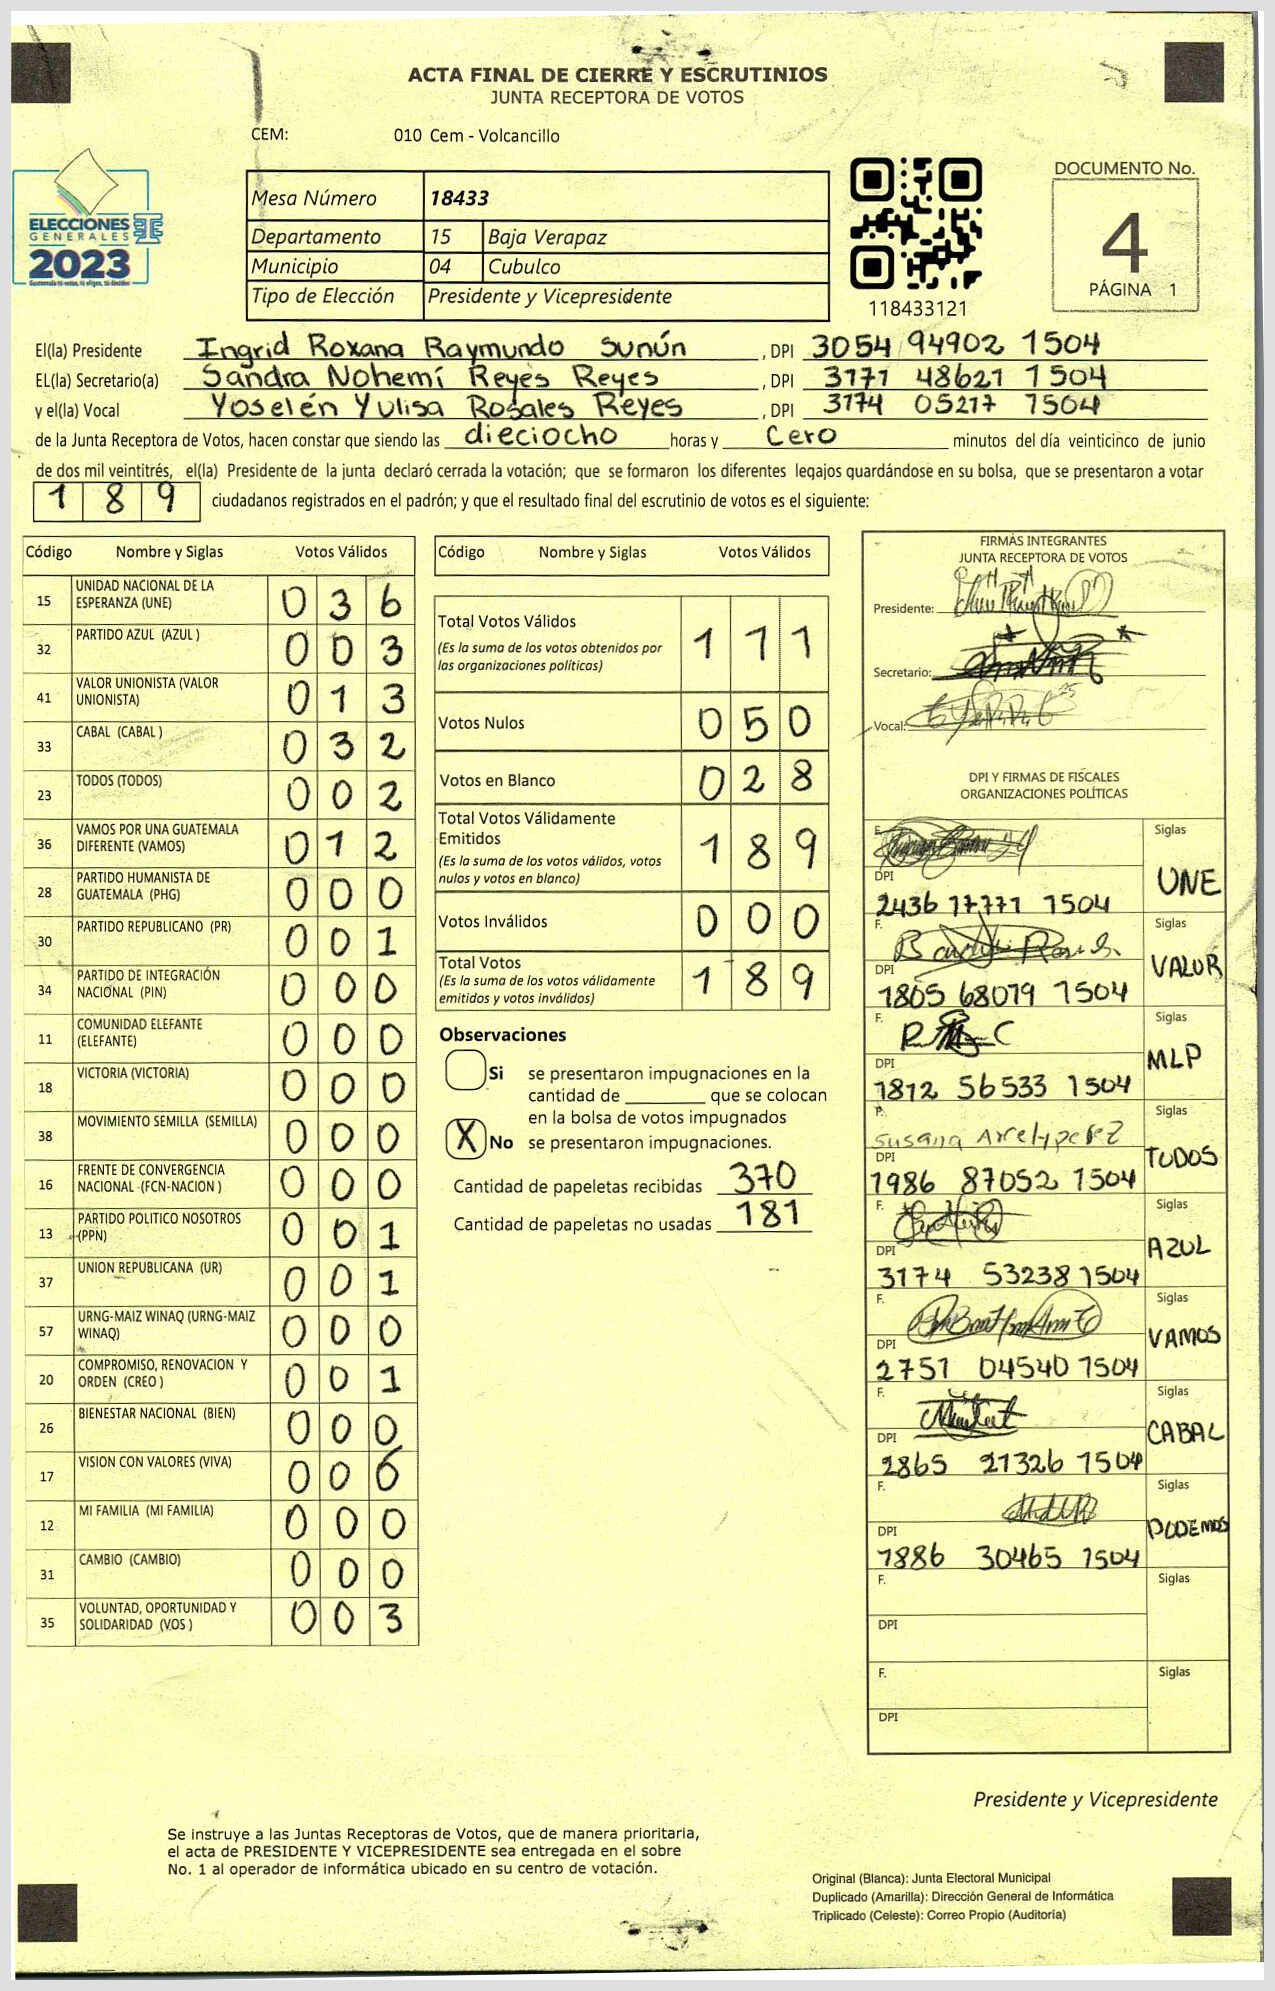 ACTA FINAL DE CIERRE Y ESCRUTINIOS
JUNTA RECEPTORA DE VOTOS
CEM: 010 Cem - Volcancillo
ELECCIONES
GENERALES
2023
Guatemala tú votas, tú eliges, tú decides
Mesa Número 18433
Departamento 15 Baja Verapaz
Municipio 04 Cubulco
Tipo de Elección Presidente y Vicepresidente
118433121
DOCUMENTO No.
4
PÁGINA 1
El(la) Presidente Ingrid Roxana Raymundo Sunún , DPI 3054 94902 1504
EL(la) Secretario(a) Sandra Nohemí Reyes Reyes , DPI 3171 48621 1504
y el(la) Vocal Yoselén Yulisa Rosales Reyes , DPI 3174 05217 1504
de la Junta Receptora de Votos, hacen constar que siendo las dieciocho horas y Cero minutos del día veinticinco de junio
de dos mil veintitrés, el(la) Presidente de la junta declaró cerrada la votación; que se formaron los diferentes legajos guardándose en su bolsa, que se presentaron a votar
189 ciudadanos registrados en el padrón; y que el resultado final del escrutinio de votos es el siguiente:
Código Nombre y Siglas Votos Válidos
15 UNIDAD NACIONAL DE LA ESPERANZA (UNE) 036
32 PARTIDO AZUL (AZUL ) 003
41 VALOR UNIONISTA (VALOR UNIONISTA) 013
33 CABAL (CABAL ) 032
23 TODOS (TODOS) 002
36 VAMOS POR UNA GUATEMALA DIFERENTE (VAMOS) 012
28 PARTIDO HUMANISTA DE GUATEMALA (PHG) 000
30 PARTIDO REPUBLICANO (PR) 001
34 PARTIDO DE INTEGRACIÓN NACIONAL (PIN) 000
11 COMUNIDAD ELEFANTE (ELEFANTE) 000
18 VICTORIA (VICTORIA) 000
38 MOVIMIENTO SEMILLA (SEMILLA) 000
16 FRENTE DE CONVERGENCIA NACIONAL (FCN-NACION ) 000
13 PARTIDO POLITICO NOSOTROS (PPN) 001
37 UNION REPUBLICANA (UR) 001
57 URNG-MAIZ WINAQ (URNG-MAIZ WINAQ) 000
20 COMPROMISO, RENOVACION Y ORDEN (CREO ) 001
26 BIENESTAR NACIONAL (BIEN) 000
17 VISION CON VALORES (VIVA) 006
12 MI FAMILIA (MI FAMILIA) 000
31 CAMBIO (CAMBIO) 000
35 VOLUNTAD, OPORTUNIDAD Y SOLIDARIDAD (VOS ) 003
Código Nombre y Siglas Votos Válidos
Total Votos Válidos 111
(Es la suma de los votos obtenidos por
las organizaciones políticas)
Votos Nulos 050
Votos en Blanco 028
Total Votos Válidamente
Emitidos 189
(Es la suma de los votos válidos, votos
nulos y votos en blanco)
Votos Inválidos 000
Total Votos 189
(Es la suma de los votos válidamente
emitidos y votos inválidos)
Observaciones
Si se presentaron impugnaciones en la
cantidad de ________ que se colocan
en la bolsa de votos impugnados
X No se presentaron impugnaciones.
Cantidad de papeletas recibidas 370
Cantidad de papeletas no usadas 181
FIRMAS INTEGRANTES
JUNTA RECEPTORA DE VOTOS
Presidente:
Secretario:
Vocal:
DPI Y FIRMAS DE FISCALES
ORGANIZACIONES POLÍTICAS
F. Siglas
DPI UNE
2436 17771 1504
F. Siglas
DPI VALOR
1805 68019 1504
F. Siglas
DPI MLP
1812 56533 1504
F. Siglas
Susana
DPI TODOS
1986 87052 1504
F. Siglas
DPI AZUL
3174 53238 1504
F. Siglas
DPI VAMOS
2751 04540 1504
F. Siglas
DPI CABAL
2865 21326 1504
F. Siglas
DPI PODEMOS
1886 30465 1504
F. Siglas
DPI
F. Siglas
DPI
Presidente y Vicepresidente
Se instruye a las Juntas Receptoras de Votos, que de manera prioritaria,
el acta de PRESIDENTE Y VICEPRESIDENTE sea entregada en el sobre
No. 1 al operador de informática ubicado en su centro de votación.
Original (Blanca): Junta Electoral Municipal
Duplicado (Amarilla): Dirección General de Informática
Triplicado (Celeste): Correo Propio (Auditoría)